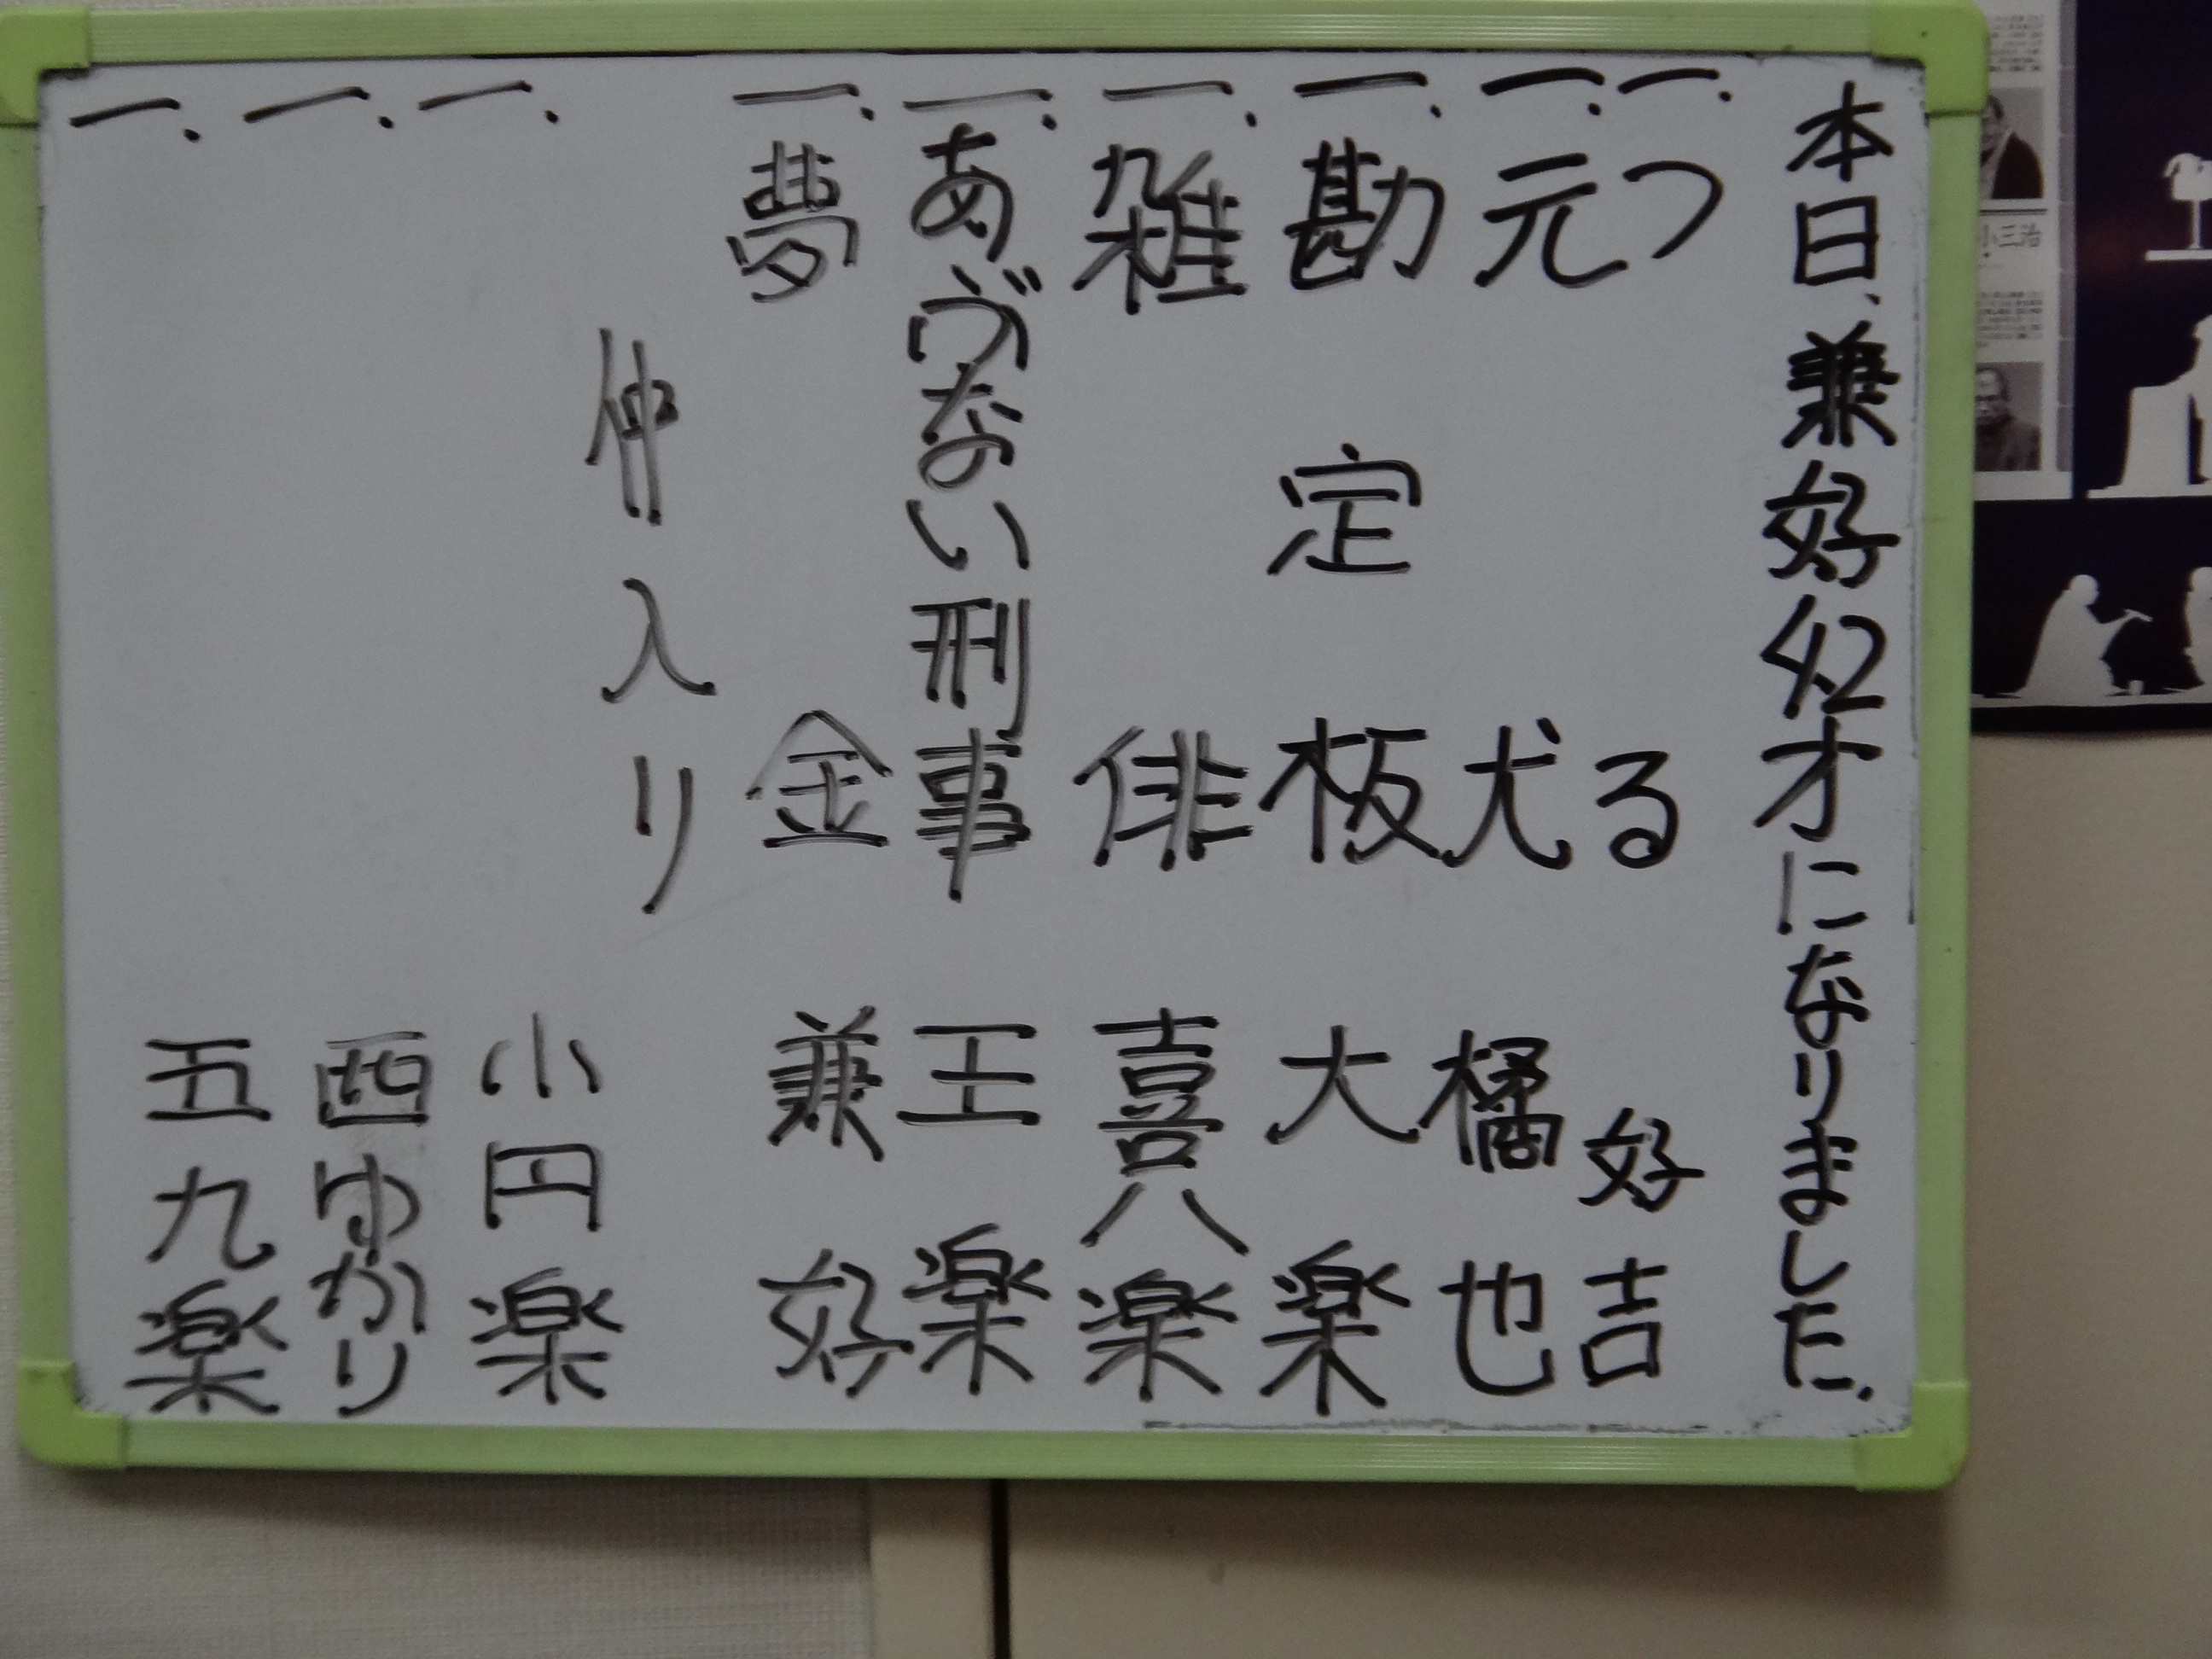 本日、兼好42才になりました.
一. つる 好吉
一. 元犬 橘也
一. 勘定板 大楽
一. 雑俳 喜八楽
一. あぶない刑事 王楽
一. 夢金 兼好
仲入り
一. 小円楽
一. 西ゆかり
一. 五九楽
小三治